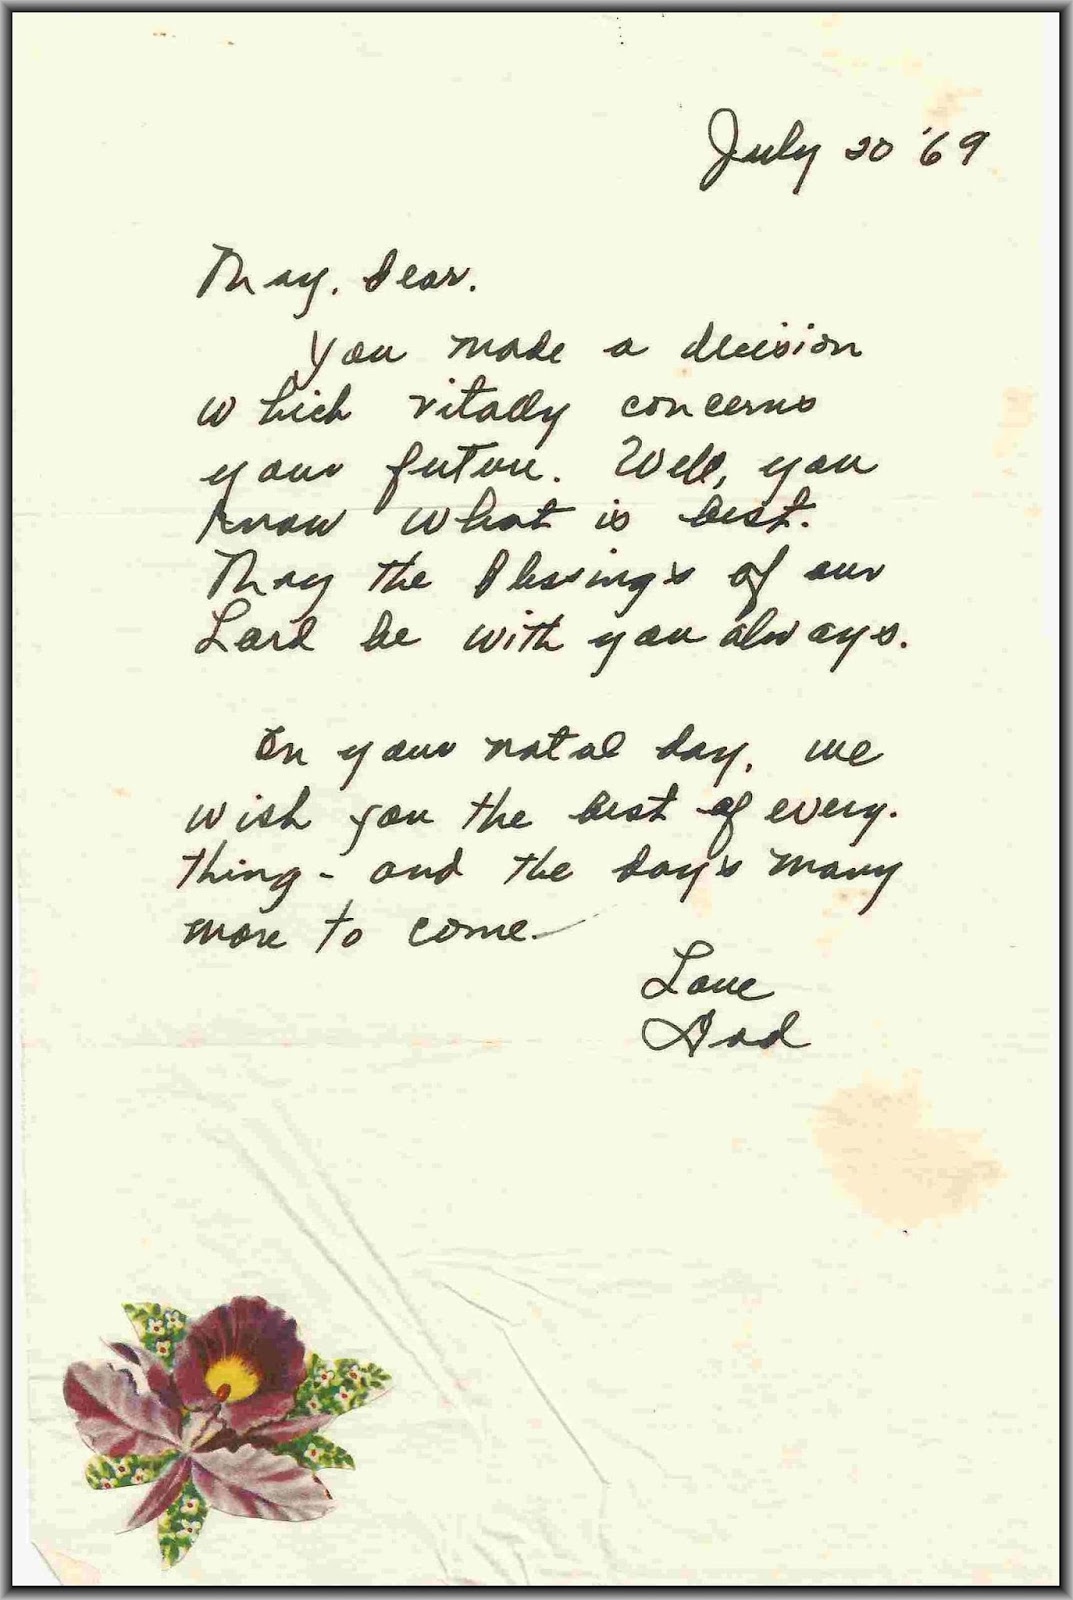 July 20 '69
May. Dear.
You made a decision
which vitally concerns
your future. Well, you
know what is best.
May the blessings of our
Lord be with you always.
On your natal day, we
wish you the best of every-
thing - and the day's many
more to come.
Love
Dad